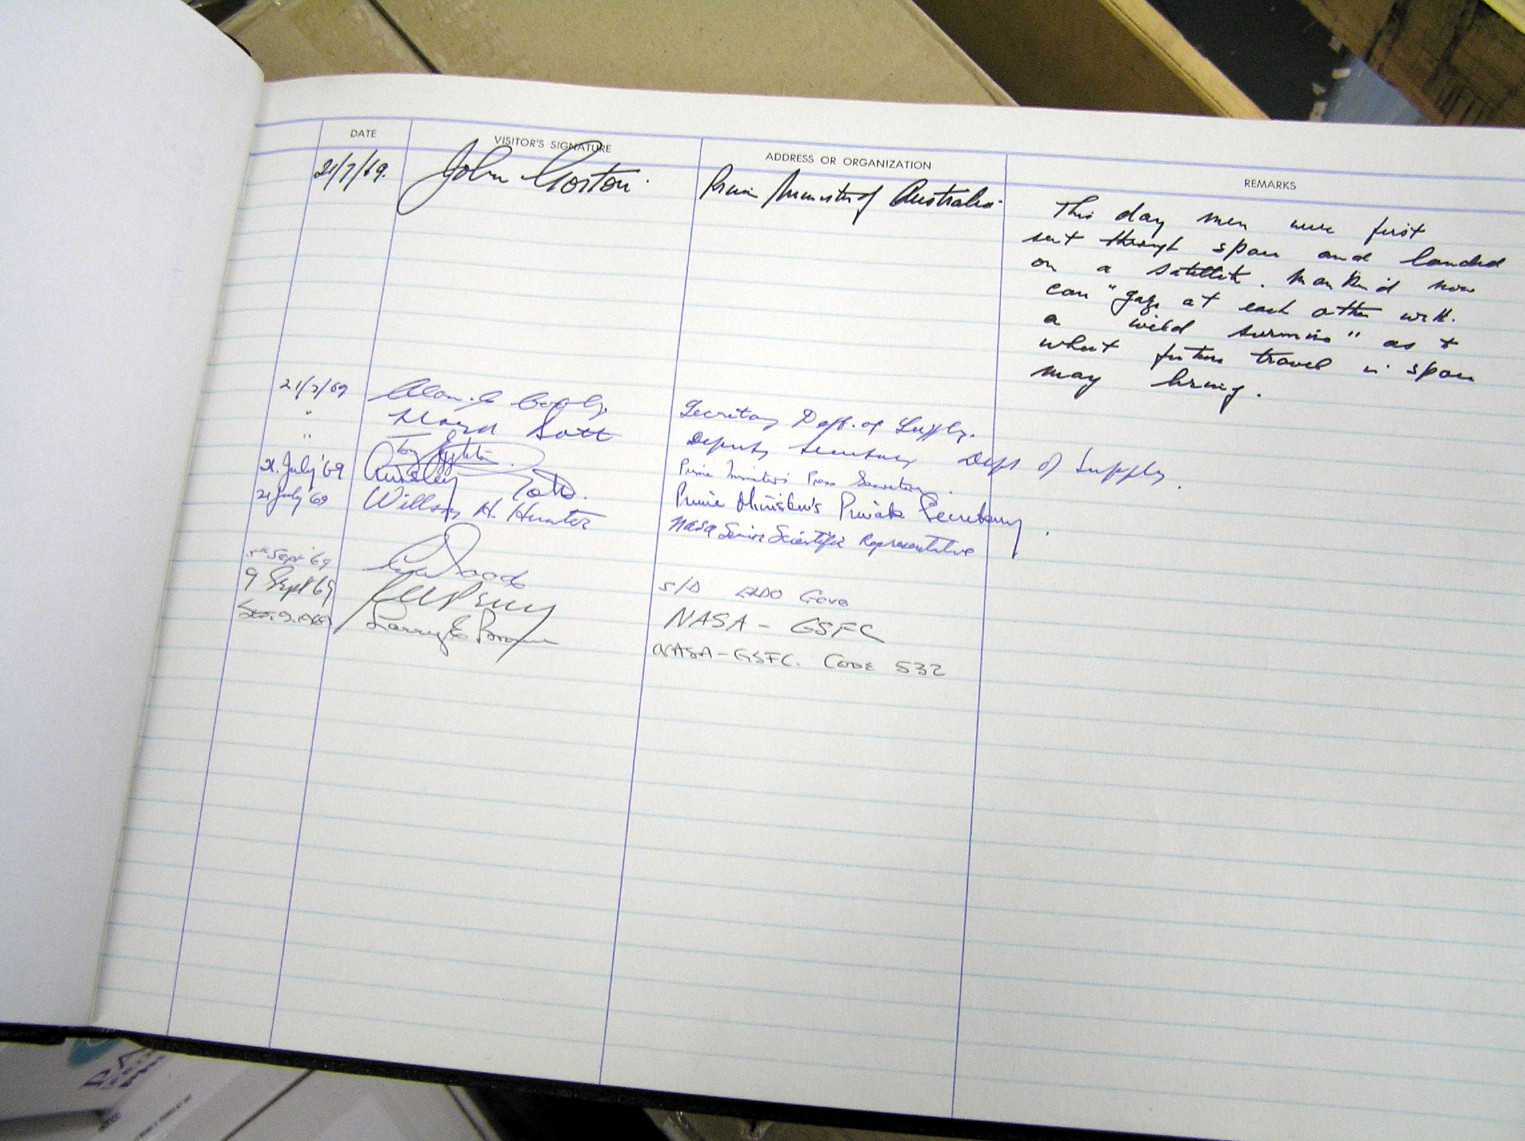 DATE VISITOR'S SIGNATURE ADDRESS OR ORGANIZATION REMARKS
21/7/69. John Gorton. Prime Minister of Australia.
This day men were first
sent through space and landed
on a satellite. Mankind now
can "gaze at each other with
a wild surmise" as to
what future travel in space
may bring.
21/7/69 Alan. Secretary Dept. of Supply.
" Deputy Secretary Dept of Supply.
" Tony Prime Minister's Press Secretary.
21. July '69 Ainsley Prime Minister's Private Secretary.
21 July '69 Willson H. Hunter NASA Senior Scientific Representative
Sept '69 S/D ELDO Gove
9 Sept 69 NASA - GSFC
Sept. 9. 1969 Larry E NASA-GSFC. CODE 532